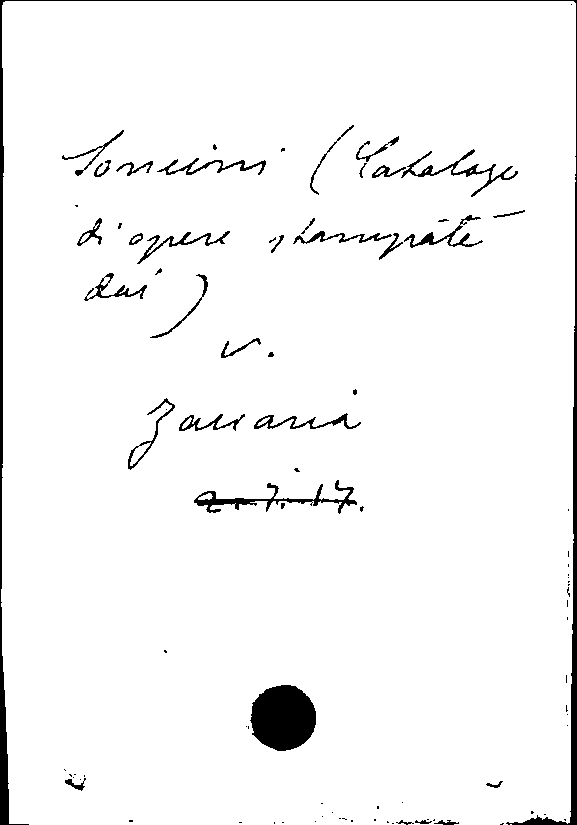 Soncini (Catalogo
di opere stampate
dai)
v.
Zaccaria
2.7.17.